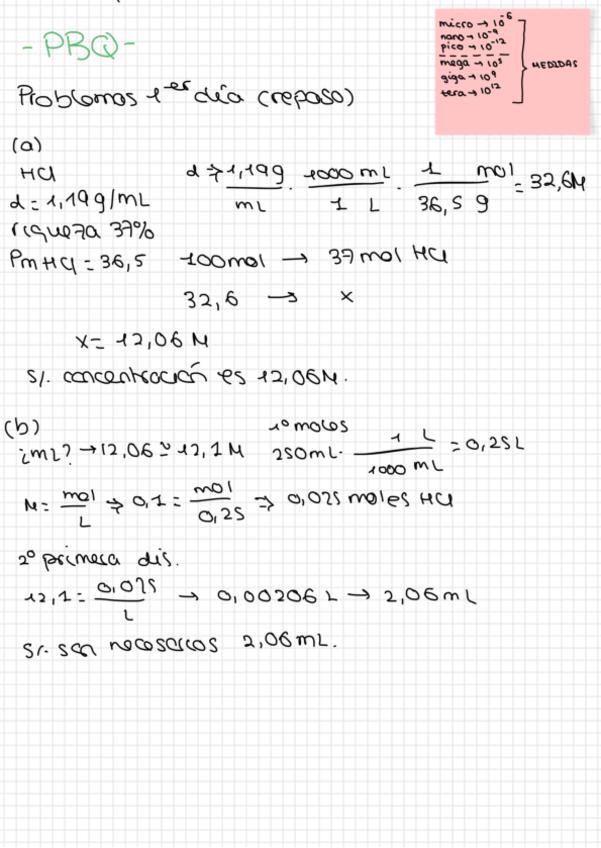 - PBQ -
micro → 10⁻⁶
nano → 10⁻⁹
pico → 10⁻¹²
mega → 10⁵
giga → 10⁹
tera → 10¹²
MEDIDAS
Problemas 1er día (repaso)
(a)
HCl
d = 1,19 g/mL
riqueza 37%
Pm HCl = 36,5
d → 1,19g / mL · 1000 mL / 1 L · 1 mol / 36,5 g = 32,6M
100mol → 37 mol HCl
32,6 → x
x = 12,06 M
S/. concentración es 12,06M.
(b)
¿mL? → 12,06 ≃ 12,1 M
1º moles
250mL · 1 L / 1000 mL = 0,25L
M = mol / L → 0,1 = mol / 0,25 ⇒ 0,025 moles HCl
2º primera dis.
12,1 = 0,025 / L → 0,00206 L → 2,06 mL
S/. son necesarios 2,06 mL.